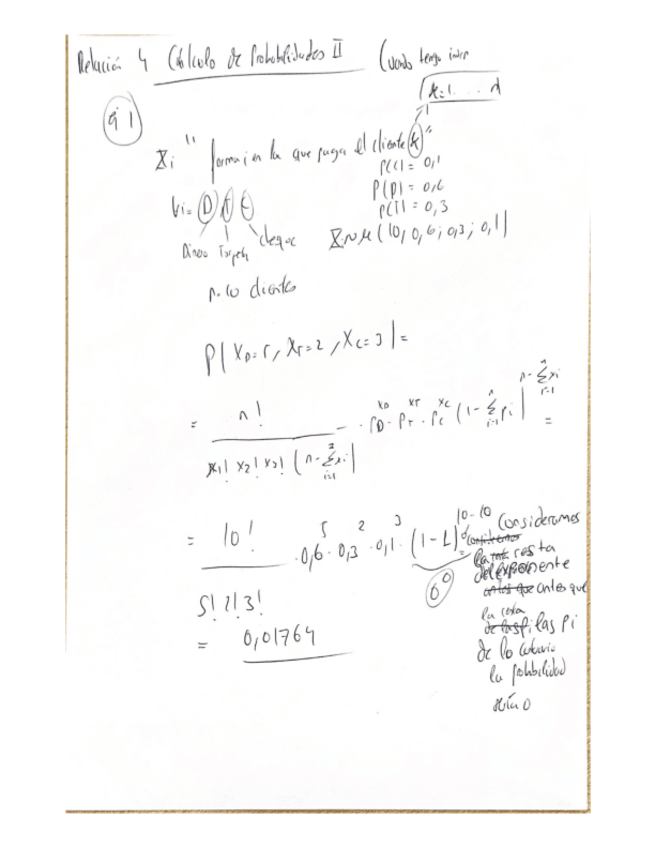 Relación 4 Cálculo de Probabilidades II
Cuando tengo
k=1....n
ej 1
Xi "forma en la que paga el cliente k"
P(C) = 0,1
P(D) = 0,6
P(T) = 0,3
D T C
Dinero Tarjeta cheque
X~M(10; 0,6; 0,3; 0,1)
n=10 clientes
P(X_D=5, X_T=2, X_C=3)=
= n! / (x1! x2! x3! (n-∑xi)!) · P_D^{x_D} · P_T^{x_T} · P_C^{x_C} (1-∑pi)^{n-∑xi} =
= 10! / (5! 2! 3!) · 0,6^5 · 0,3^2 · 0,1^3 · (1-1)^{10-10} =
0^0
Consideramos
la resta
del exponente
antes que
la resta
de las pi
de lo contrario
la probabilidad
sería 0
= 0,01764